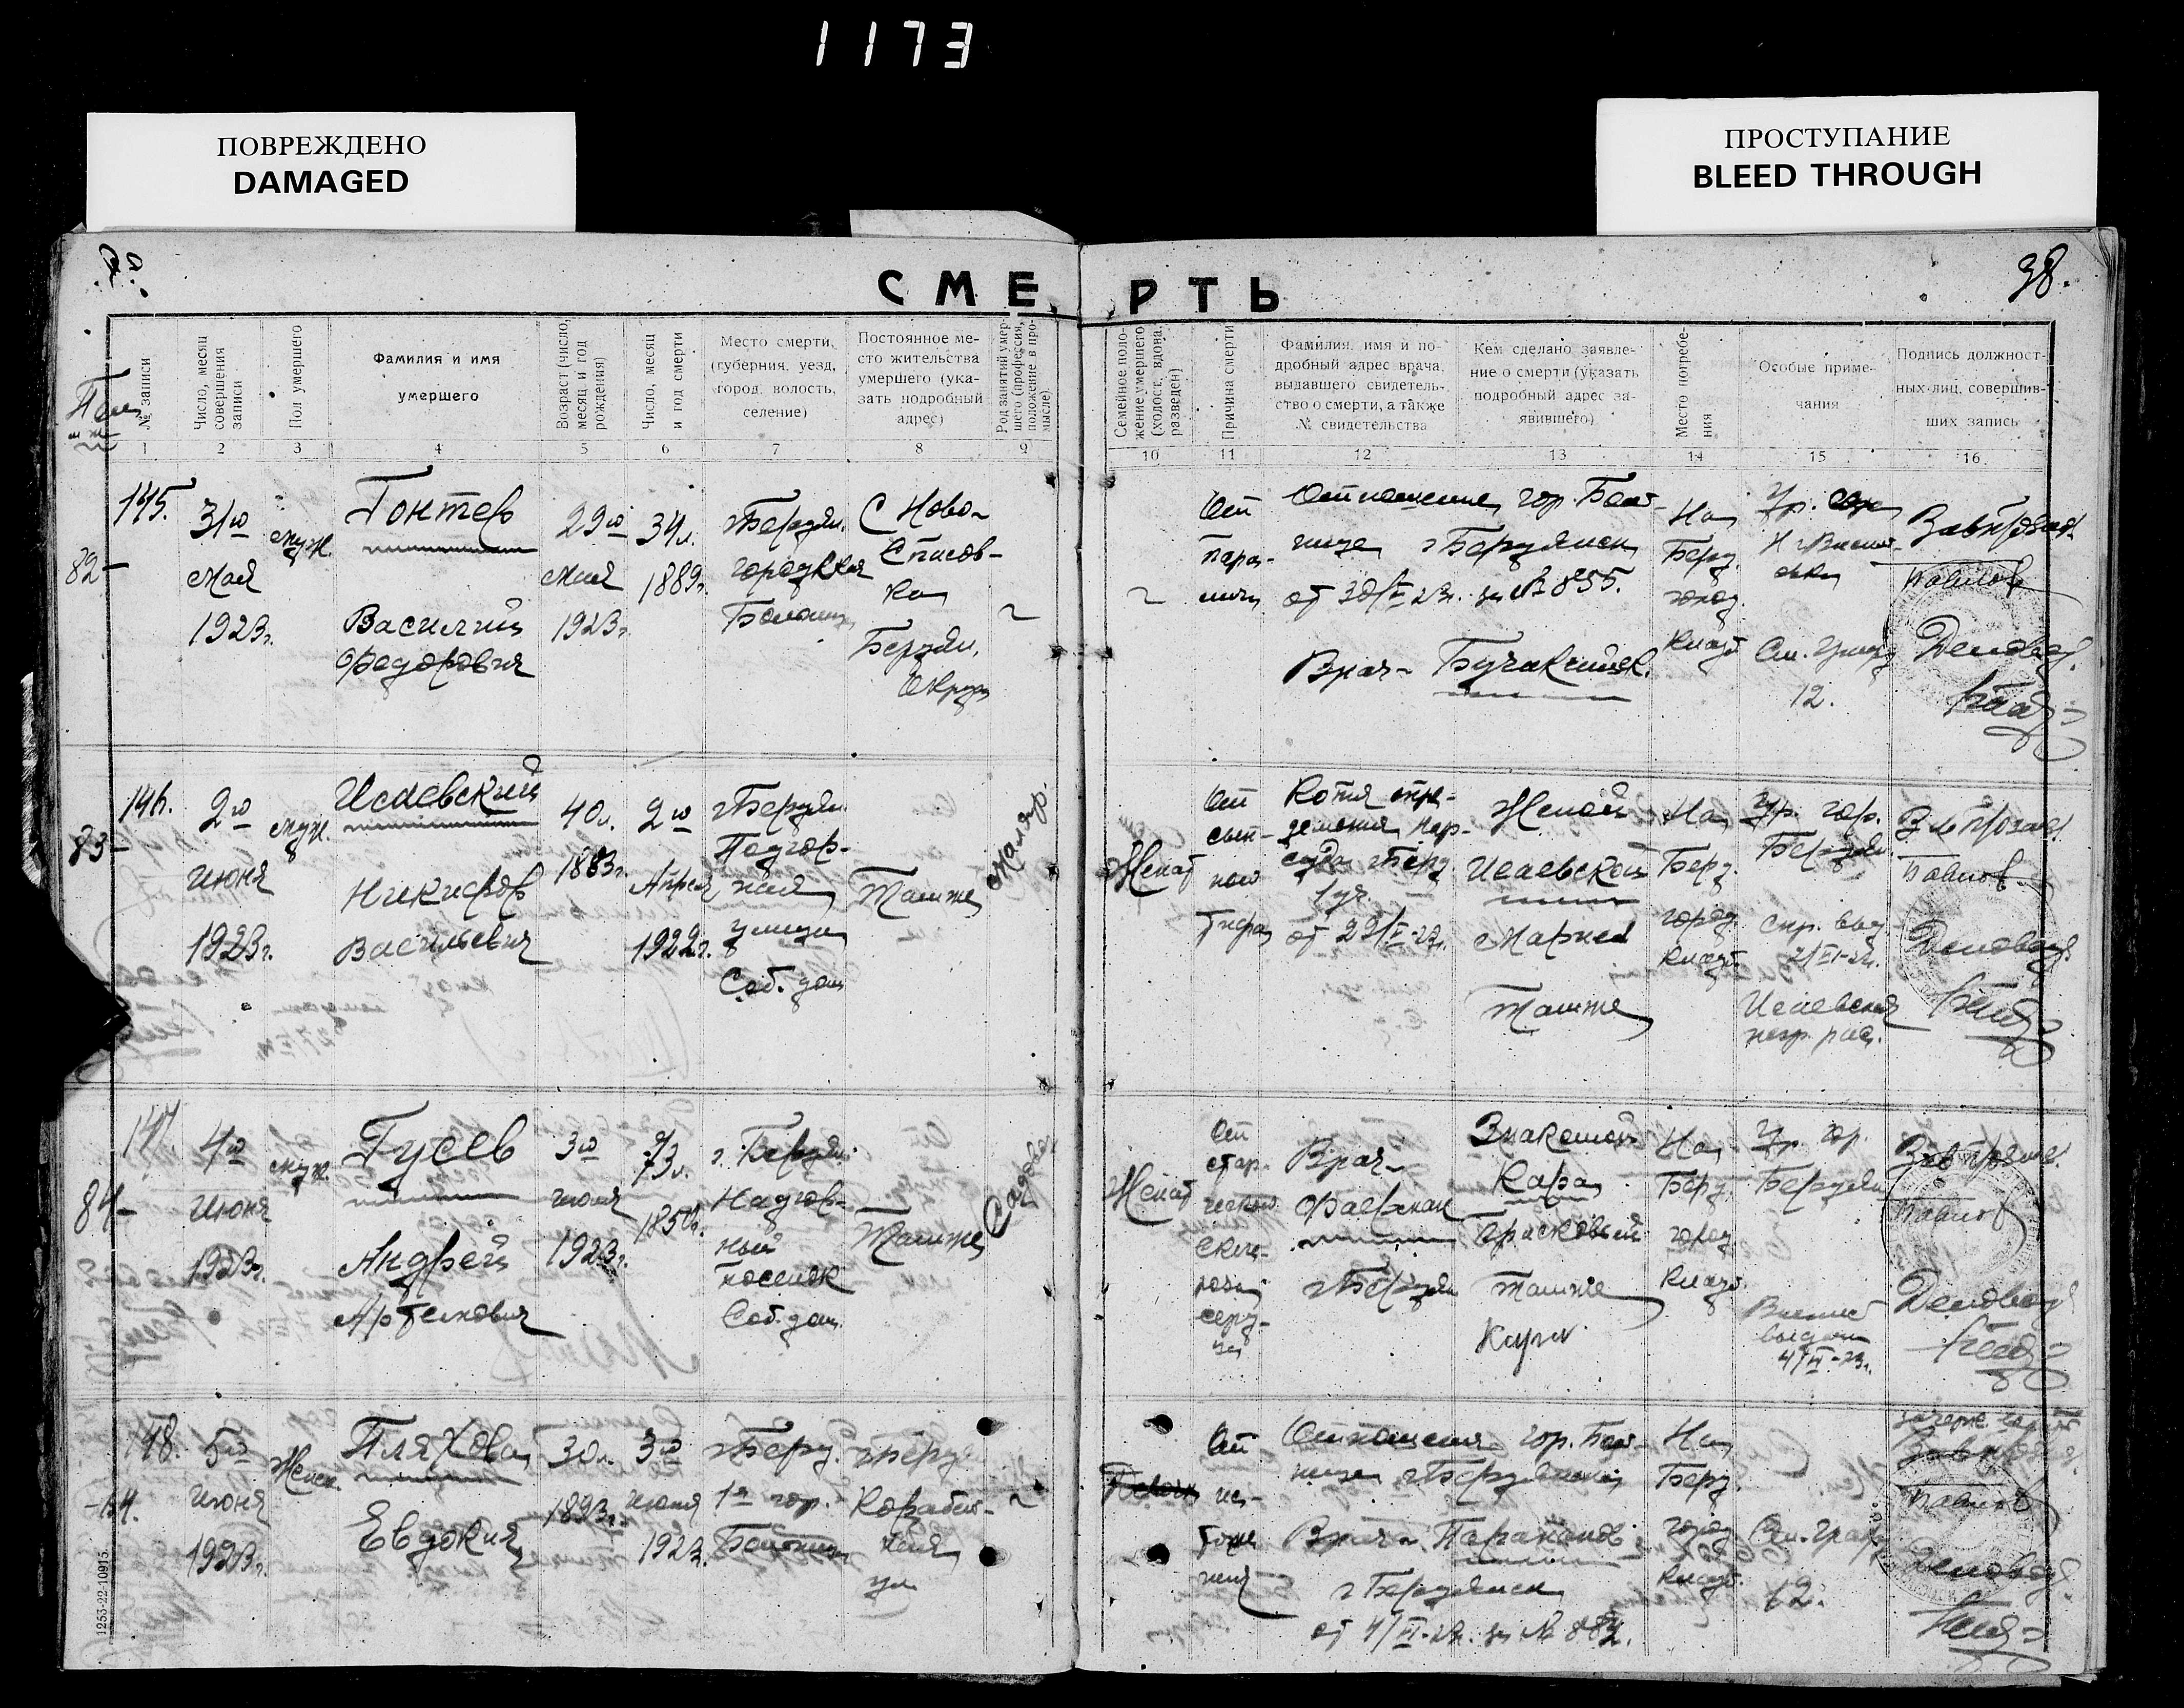 1173
ПОВРЕЖДЕНО
DAMAGED
ПРОСТУПАНИЕ
BLEED THROUGH
СМЕРТЬ
38.
№ записи
Число, месяц совершения записи
Пол умершего
Фамилия и имя умершего
Возраст (число, месяц и год рождения)
Число, месяц и год смерти
Место смерти, (губерния, уезд, город, волость, селение)
Постоянное место жительства умершего (указать подробный адрес)
Род занятий умершего (профессия, положение в промысле)
Семейное положение умершего (холост, вдова, разведен)
Причина смерти
Фамилия, имя и подробный адрес врача, выдавшего свидетельство о смерти, а также № свидетельства
Кем сделано заявление о смерти (указать подробный адрес заявившего)
Место погребения
Особые примечания
Подпись должностных лиц, совершивших запись
1 2 3 4 5 6 7 8 9 10 11 12 13 14 15 16
145.
82-
31го
мая
1923г.
муж.
Гонтев
Василий
Федорович
29го
мая
1923г.
34л.
1889г.
г Бердян.
городская
С Ново-
Спасов-
ка
Бердян.
Округа
От
Отношение гор. Боль-
ницы г Бердянска
от 30/V-23г. за № 855.
Врач-
На
Берд.
город.
кладб.
12.
Павлов
Деловод.
146.
83-
2го
июня
1923г.
муж.
Исаевский
Никифор
Васильевич
40л.
1883г.
2го
Апреля
1922г.
г Бердян
Подгор-
ная
улица
Соб. дом
Тамже
Маляр.
Женат
От
сып-
ного
тифа
Копия опре-
деления Нар-
суда г Берд.
1 уч.
Женой
Исаевской
Марией
Тамже
На
Берд.
город.
кладб.
гор.
Бердян
Исаевская
Павлов.
Деловод.
147.
84-
4го
июня
1923г.
муж.
Гусев
Андрей
Артемович
3го
июня
1923г.
73л.
1850г.
г. Бердян.
Надгор-
ный
поселок
Соб. дом.
Тамже
Садовод
Женат
От
стар-
ческого
Склe-
роза
серд-
ца
Врач-
г Бердян
Знакомой
Кара
Прасковьей
Тамже
На
Берд.
город.
кладб.
гор.
Бердян
выдана
4/VI-23г.
Павлов
Деловод.
148.
-64.
5го
июня
1923г.
Женск.
Пляхова
Евдокия
30л.
1893г.
3го
июня
1923г.
г Берд.
1я гор.
Больница
г Берд.
Корабель-
ная
ул
От
ис-
тоще
ния
Отношения гор. Боль-
ницы г Бердянска
Врач-
г Бердянск
от 4/VI-23г. за № 882.
На
Берд.
город.
кладб.
12.
Павлов
Деловод.
1253-22-10915